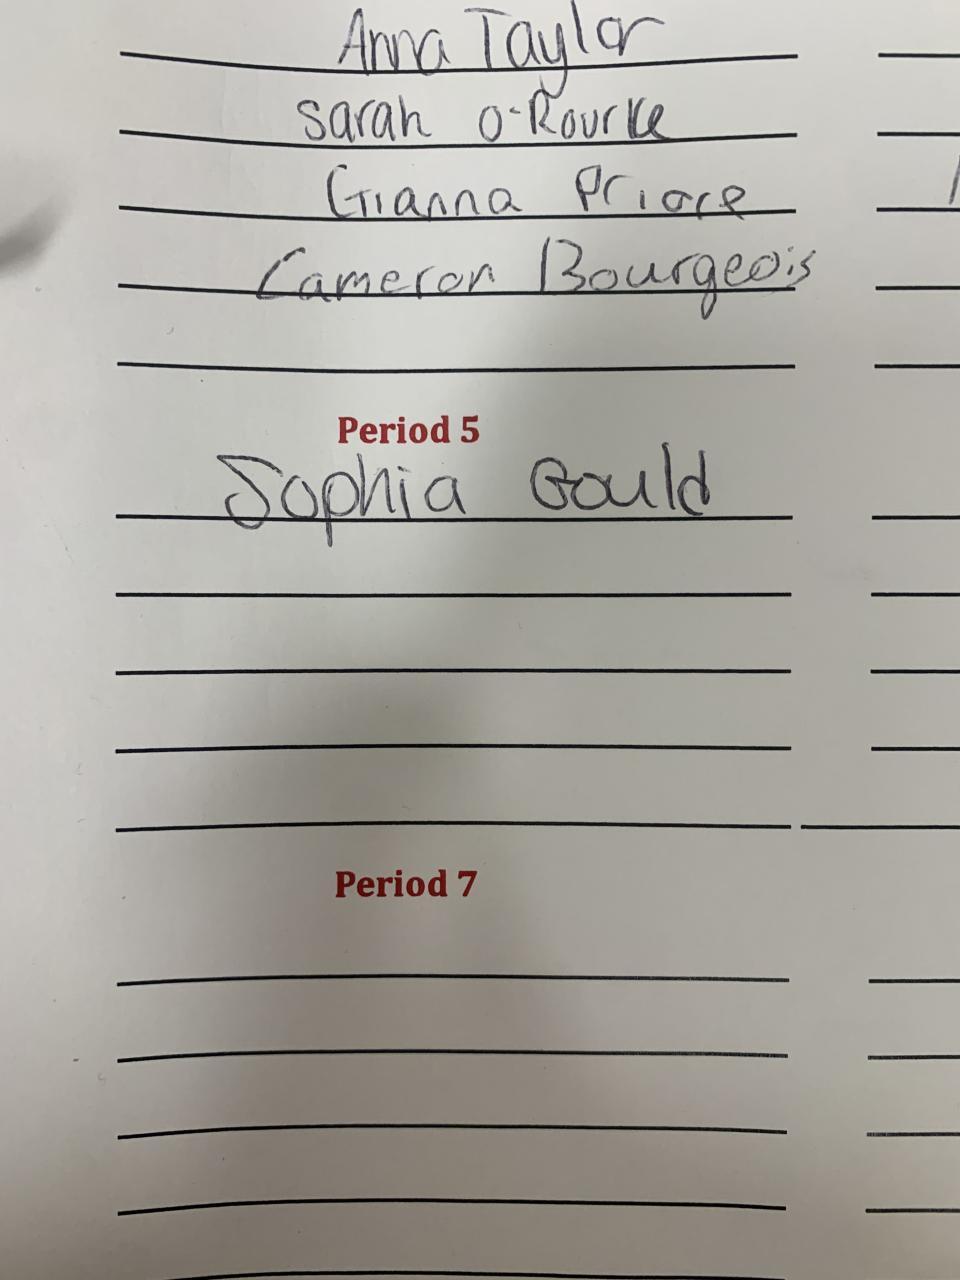 Anna Taylor
Sarah O-Rourke
Gianna Priore
Cameron Bourgeois
Period 5
Sophia Gould
Period 7